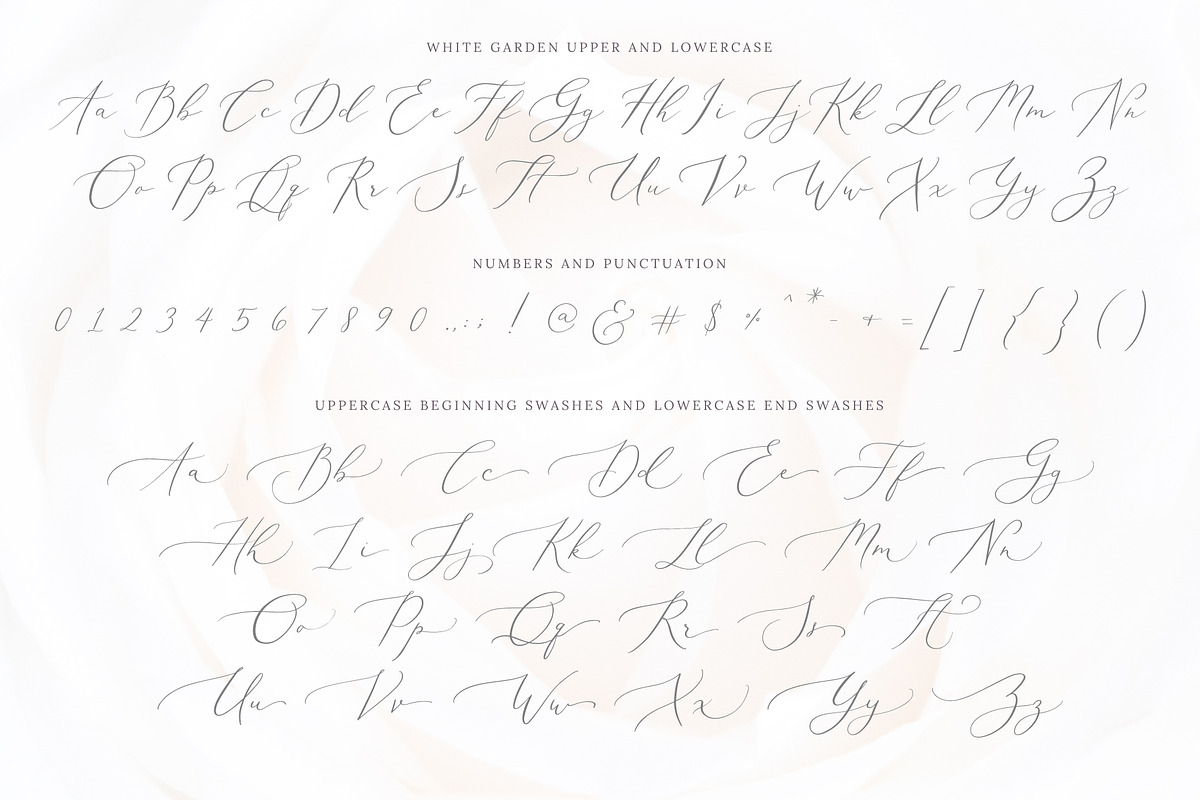 WHITE GARDEN UPPER AND LOWERCASE
Aa Bb Cc Dd Ee Ff Gg Hh Ii Jj Kk Ll Mm Nn
Oo Pp Qq Rr Ss Tt Uu Vv Ww Xx Yy Zz
NUMBERS AND PUNCTUATION
0 1 2 3 4 5 6 7 8 9 0 . , : ; ! @ & # $ % ^ * - + = [ ] { } ( )
UPPERCASE BEGINNING SWASHES AND LOWERCASE END SWASHES
Aa Bb Cc Dd Ee Ff Gg
Hh Ii Jj Kk Ll Mm Nn
Oo Pp Qq Rr Ss Tt
Uu Vv Ww Xx Yy Zz